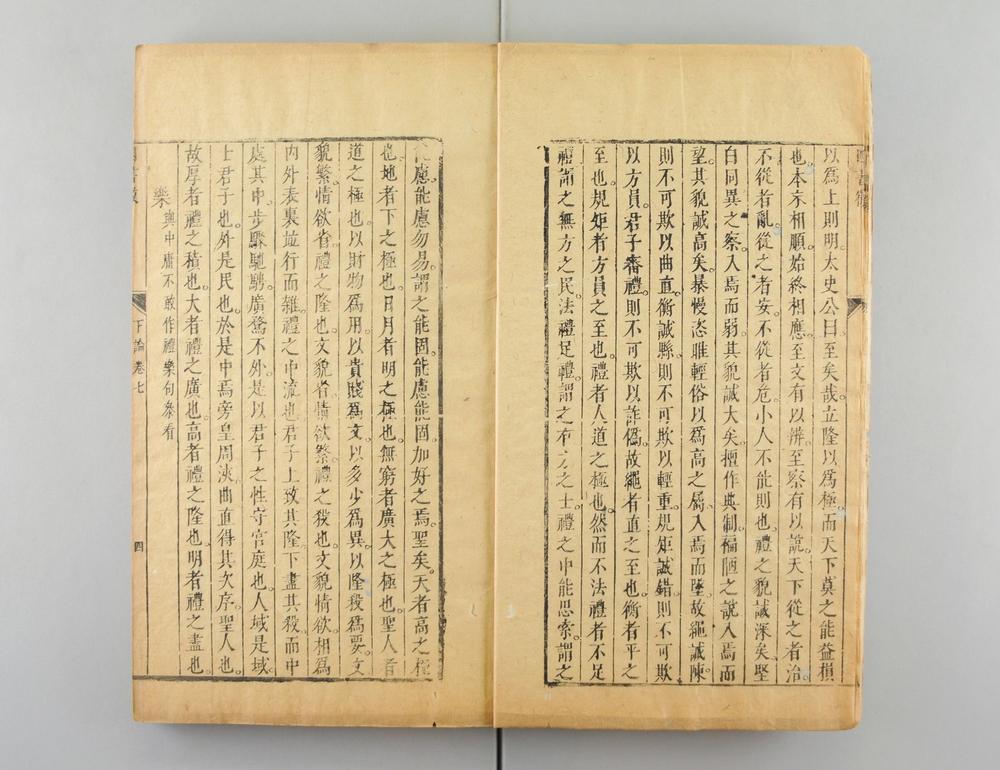 以爲上則明太史公曰至矣哉立隆以爲極而天下莫之能益損
也本末相順始終相應至文有以辨至察有以說天下從之者治
不從者亂從之者安不從者危小人不能則也禮之貌誠深矣堅
白同異之察入焉而弱其貌誠大矣擅作典制褊陋之說入焉而
望其貌誠高矣暴慢恣睢輕俗以爲高之屬入焉而墜故繩誠陳
則不可欺以曲直衡誠縣則不可欺以輕重規矩誠錯則不可欺
以方員君子審禮則不可欺以詐僞故繩者直之至也衡者平之
至也規矩者方員之至也禮者人道之極也然而不法禮者不足
禮謂之無方之民法禮足禮謂之有方之士禮之中能思索謂之
能慮能慮勿易謂之能固能慮能固加好之焉聖矣天者高之極
也地者下之極也日月者明之極也無窮者廣大之極也聖人者
道之極也以財物爲用以貴賤爲文以多少爲異以隆殺爲要文
貌繁情欲省禮之隆也文貌省情欲繁禮之殺也文貌情欲相爲
內外表裏竝行而雜禮之中流也君子上致其隆下盡其殺而中
處其中步驟馳騁廣騖不外是以君子之性守宮庭也人域是域
士君子也外是民也於是中焉旁皇周浹曲直得其次序聖人也
故厚者禮之積也大者禮之廣也高者禮之隆也明者禮之盡也
樂 與中庸不敢作禮樂句叅看
下論卷七
四